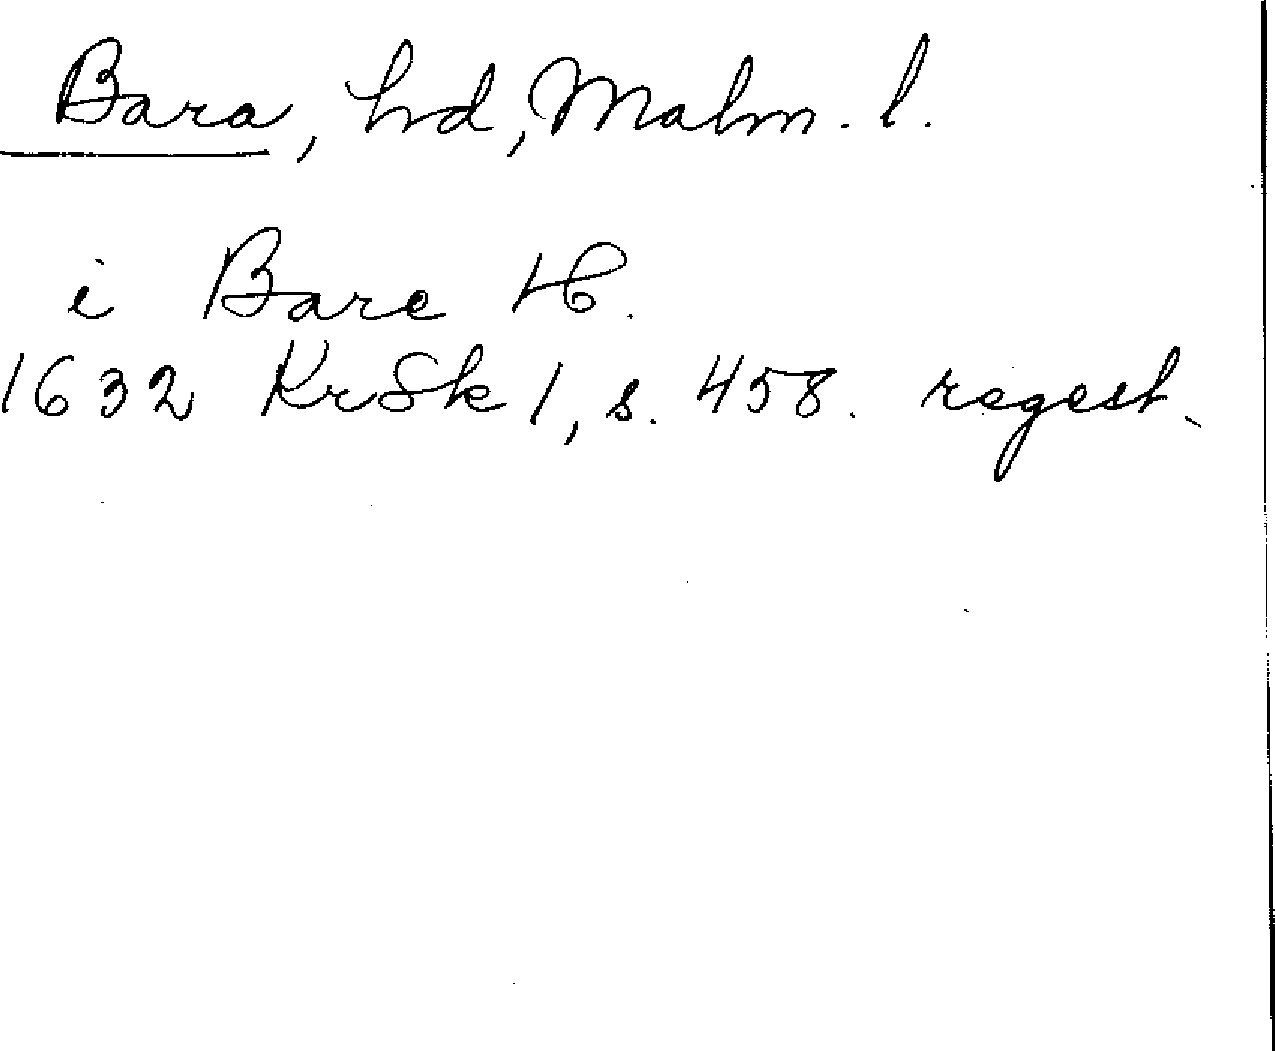 Bara, hd, Malm. l.
i Bare H.
1632 KrSk 1, s. 458. regest.